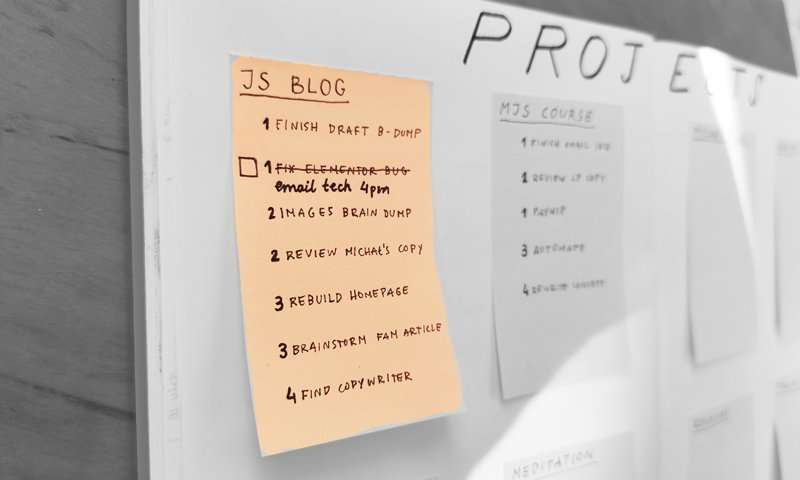 PROJECTS
JS BLOG
1 FINISH DRAFT B-DUMP
1 FIX ELEMENTOR BUG
email tech 4pm
2 IMAGES BRAIN DUMP
2 REVIEW MICHAŁ'S COPY
3 REBUILD HOMEPAGE
3 BRAINSTORM FAM ARTICLE
4 FIND COPYWRITER
MJS COURSE
1 FINISH EMAIL
2 REVIEW LP COPY
1 PAYHIP
3 AUTOMATE
4 REWRITE
MEDITATION